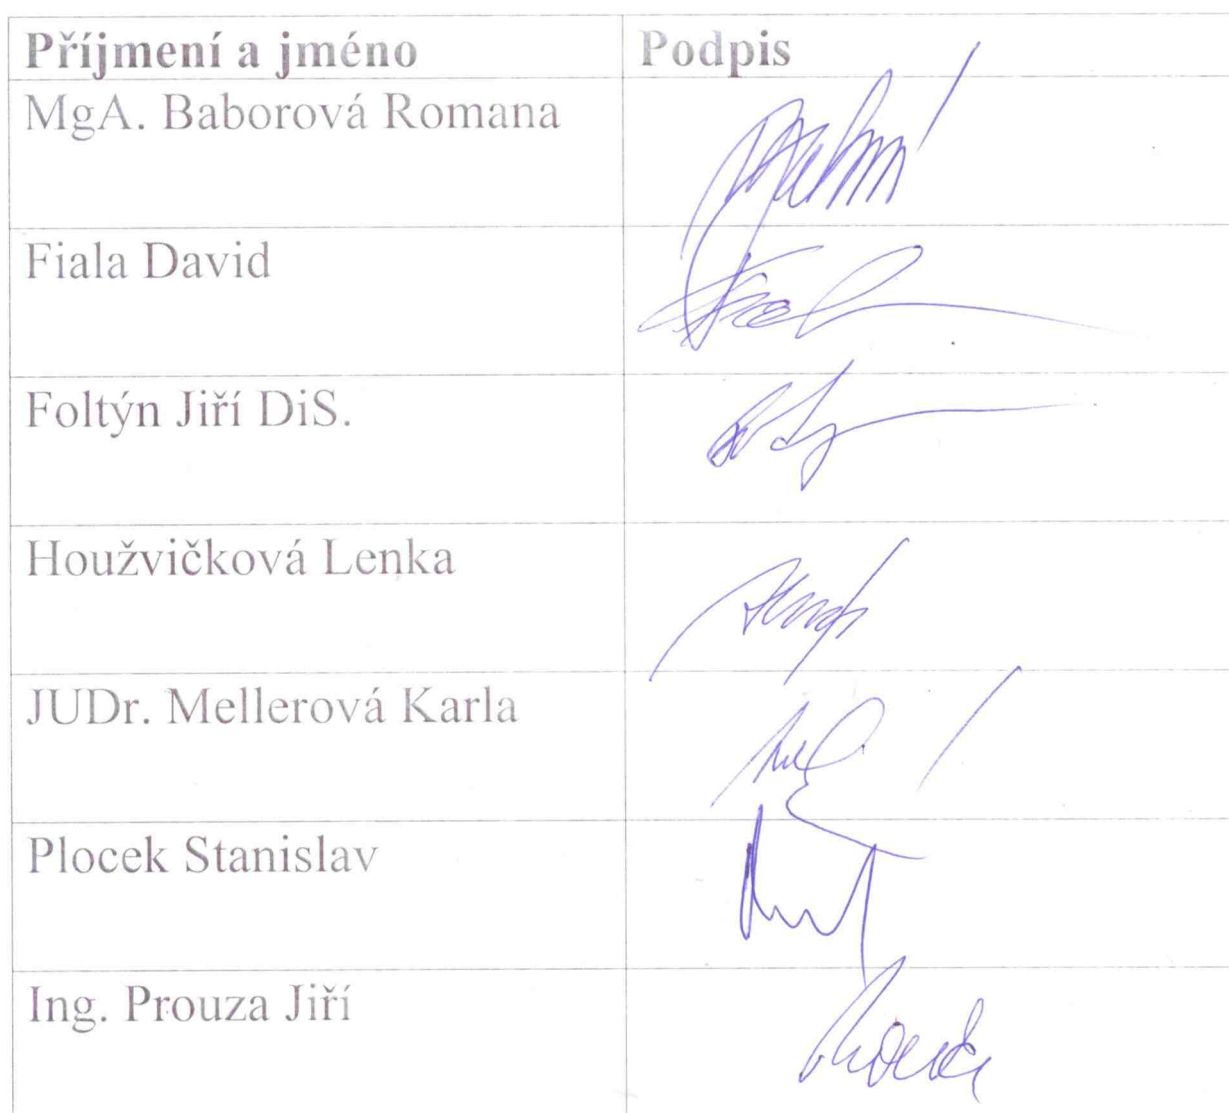 Příjmení a jméno Podpis
MgA. Baborová Romana
Fiala David
Foltýn Jiří DiS.
Houžvičková Lenka
JUDr. Mellerová Karla
Plocek Stanislav
Ing. Prouza Jiří